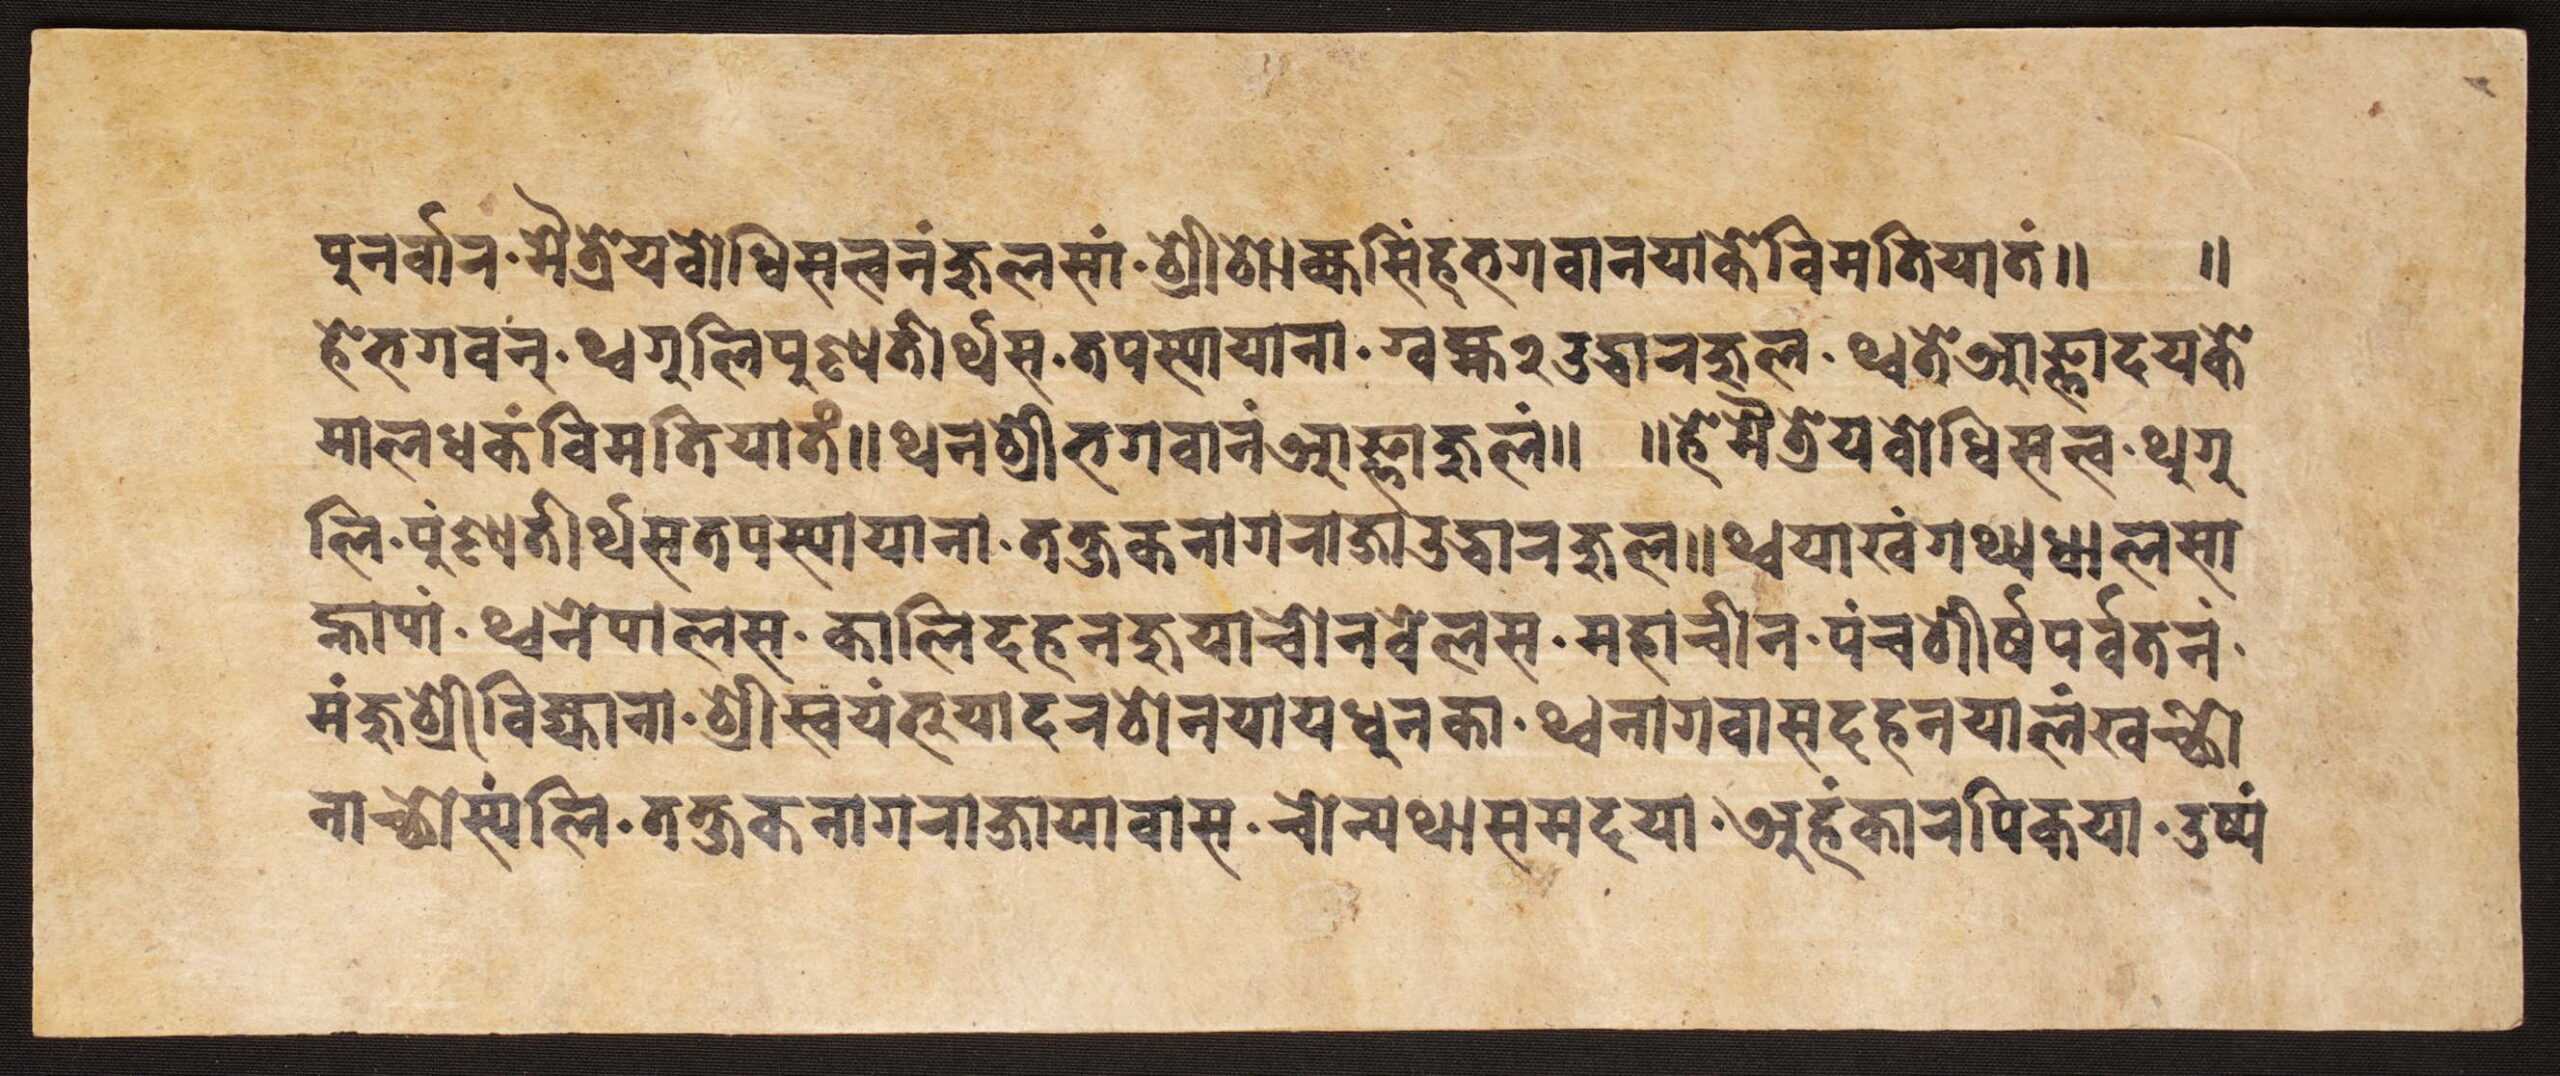 पुनर्वार·मैत्रेयवोधिसत्वनंजुलसां·श्रीशाक्यसिंहभगवानयाकेविमतियातं॥ ॥
हेभगवन्·थ्वगुलिपुण्यतीर्थस·तपस्यायाना·ग्वह्म२उद्धारजुल·थ्वतेआज्ञादयके
मालधकंविमतियातं॥थनश्रीभगवानंआज्ञाजुलं॥ ॥हेमैत्रेयवोधिसत्व·थुगु
लि·पुंण्यतीर्थसतपस्यायाना·तक्षकनागराजाउद्धारजुल॥थ्वयाखंगथ्यधालसा
ह्नापां·थ्वनेपालस·कालिदहनजुयाचोनवेलस·महाचीन·पंचशीर्षपर्वतनं·
मंजुश्रीविज्याना·श्रीस्वयंभूयादरशोनयायधुनका·थ्वनागवासदहनयालंखच्छो
नाच्छोस्यंलि·तक्षकनागराजायावास·चोन्यथासमदया·अहंकारपिकया·उष्यं